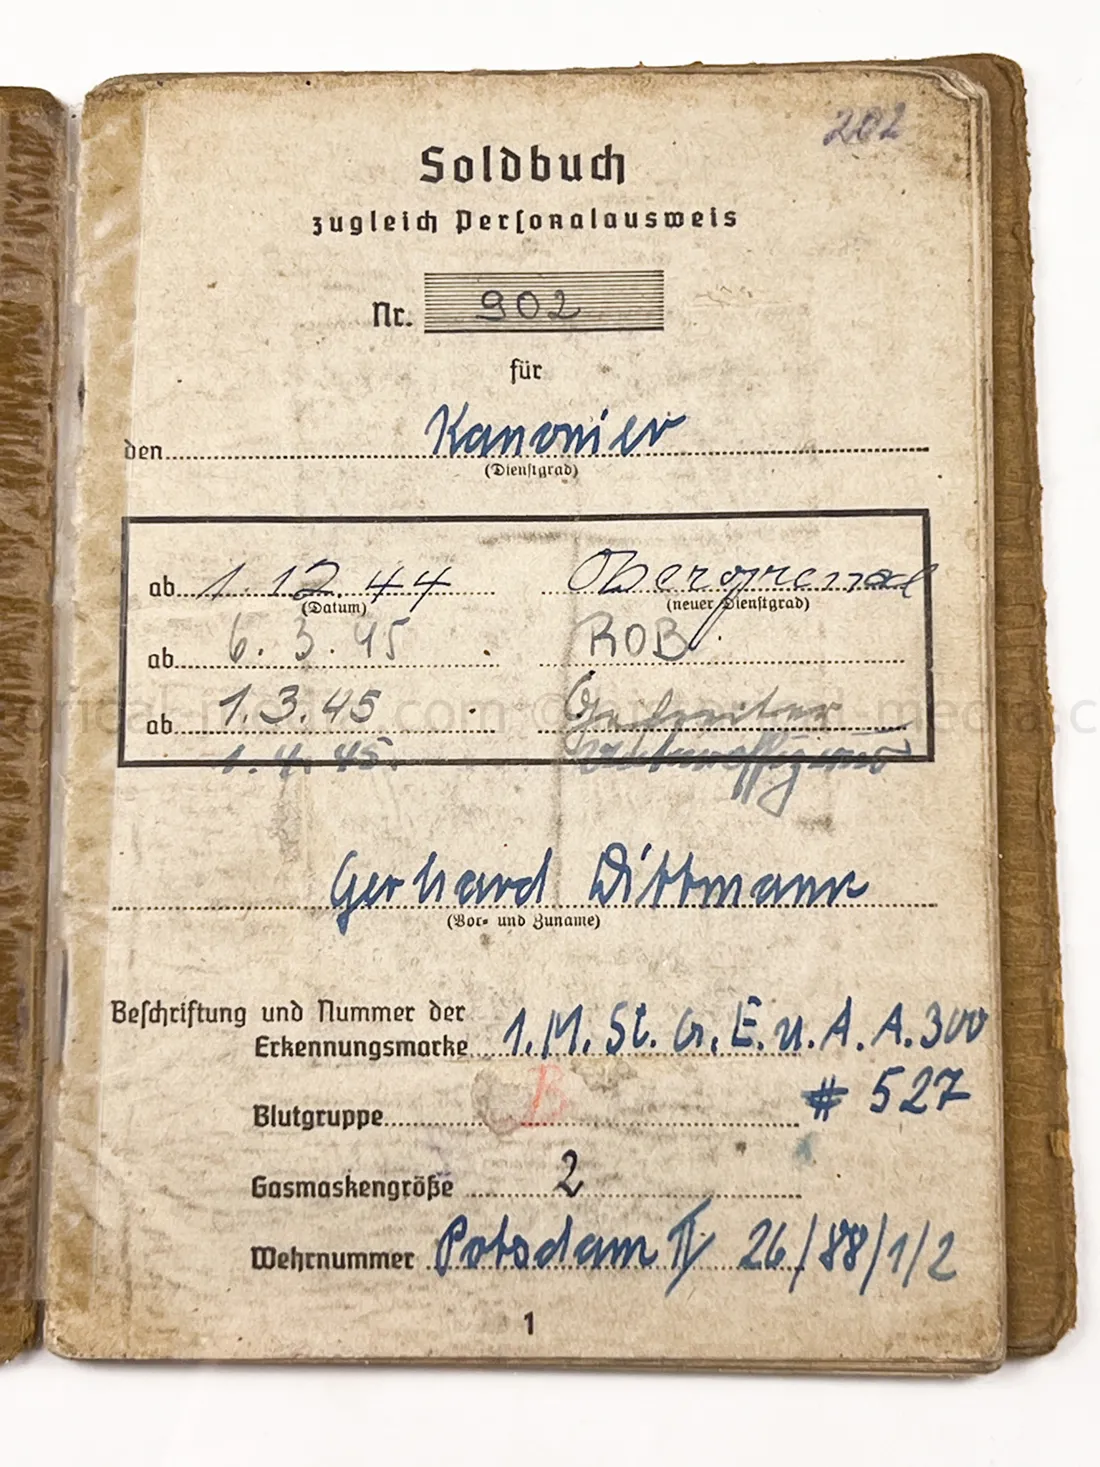 202
Soldbuch
zugleich Personalausweis
Nr. 902
für
den Kanonier
(Dienstgrad)
ab 1.12.44 Obergrenad
(Datum) (neuer Dienstgrad)
ab 6.3.45 ROB.
ab 1.3.45 Gefreiter
1.4.45. Unteroffizier
Gerhard Dittmann
(Vor- und Zuname)
Beschriftung und Nummer der
Erkennungsmarke 1.M.St.G.E.u.A.A.300
# 527
Blutgruppe B
Gasmaskengröße 2
Wehrnummer Potsdam II 26/88/1/2
1